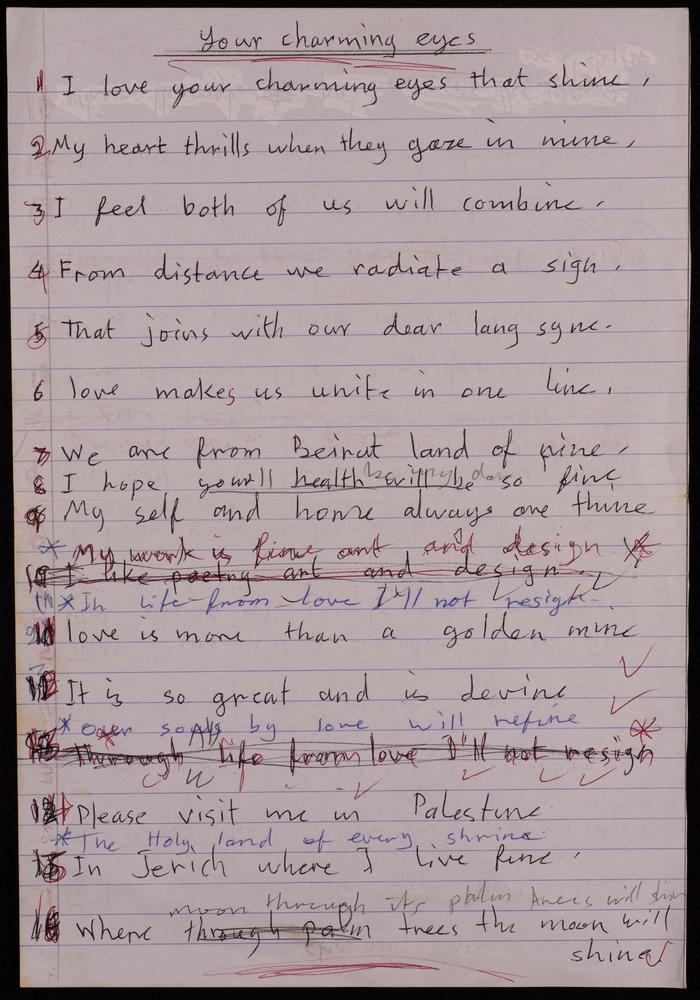 Your charming eyes
1 I love your charming eyes that shine,
2 My heart thrills when they gaze in mine,
3 I feel both of us will combine.
4 From distance we radiate a sign.
5 That joins with our dear lang syne.
6 love makes us unite in one line.
7 We are from Beirut land of pine,
8 I hope health so fine
My self and home always are thine
* My work is fine art and design
I like poetry art and design.
* In life from love I'll not resign.
love is more than a golden mine
It is so great and is devine
* Over souls by love will refine
Through All life from love I'll not resign
Please visit me in Palestine
* The Holy land of every shrine.
In Jerich where I live fine.
moon through its phalm trees will
Where through palm trees the moon will
shine